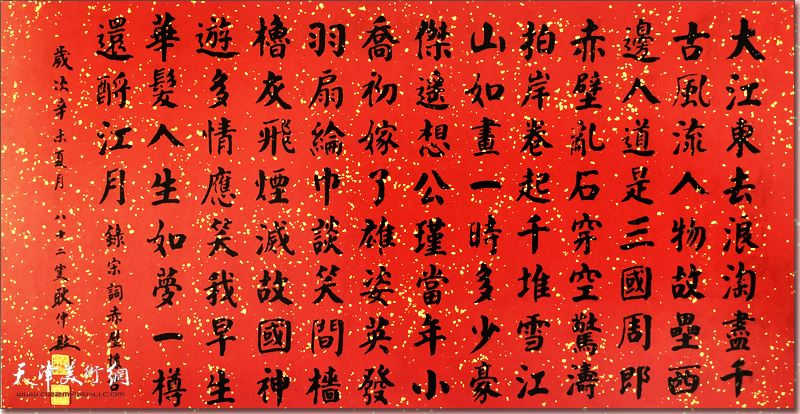 大江東去浪淘盡千
古風流人物故壘西
邊人道是三國周郎
赤壁亂石穿空驚濤
拍岸卷起千堆雪江
山如畫一時多少豪
傑遙想公瑾當年小
喬初嫁了雄姿英發
羽扇綸巾談笑間檣
櫓灰飛煙滅故國神
遊多情應笑我早生
華髮人生如夢一樽
還酹江月
錄宗詞赤壁
歲次辛未夏月八十二叟
天津美術網